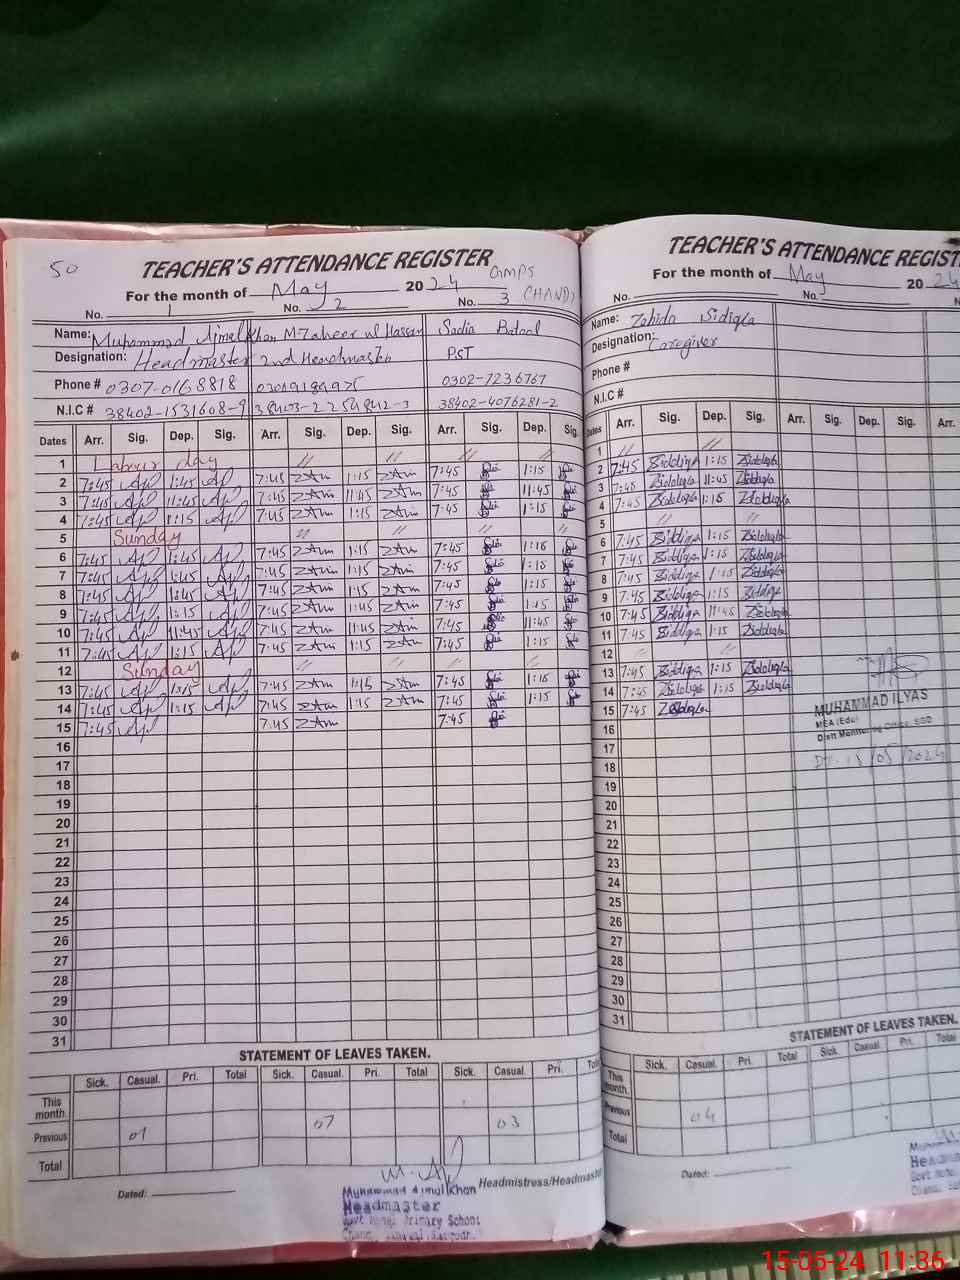 50
TEACHER'S ATTENDANCE REGISTER
GMPS
For the month of May 2024
CHANDI
No. 1 No. 2 No. 3
Name: Muhammad Ajmal Khan M Zaheer ul Hassan Sadia Batool
Designation: Headmaster 2nd Headmaster PST
Phone # 0307-0168818 03069189975 0302-7236767
N.I.C # 38402-1531608-9 38403-2254842-3 38402-4076281-2
Dates Arr. Sig. Dep. Sig. Arr. Sig. Dep. Sig. Arr. Sig. Dep. Sig.
1 Labour day
2 7:45 1:45 7:45 ZAm 1:15 ZAm 7:45 1:15
3 7:45 11:45 7:45 ZAm 11:45 ZAm 7:45 11:45
4 7:45 1:15 7:45 ZAm 1:15 ZAm 7:45 1:15
5 Sunday
6 7:45 1:45 7:45 ZAm 1:15 ZAm 7:45 1:15
7 7:45 1:45 7:45 ZAm 1:15 ZAm 7:45 1:15
8 7:45 1:45 7:45 ZAm 1:15 ZAm 7:45 1:15
9 7:45 1:15 7:45 ZAm 1:45 ZAm 7:45 1:15
10 7:45 11:45 7:45 ZAm 11:45 ZAm 7:45 11:45
11 7:45 1:15 7:45 ZAm 1:15 ZAm 7:45 1:15
12 Sunday
13 7:45 1:15 7:45 ZAm 1:15 ZAm 7:45 1:15
14 7:45 1:15 7:45 ZAm 1:15 ZAm 7:45 1:15
15 7:45 7:45 ZAm 7:45
16
17
18
19
20
21
22
23
24
25
26
27
28
29
30
31
STATEMENT OF LEAVES TAKEN.
Sick. Casual. Pri. Total Sick. Casual. Pri. Total Sick. Casual. Pri. Total
This month.
Previous 01 07 03
Total
Dated: Headmistress/Headmaster
Muhammad Ajmal Khan
Headmaster
Govt Primary School
TEACHER'S ATTENDANCE REGIST
For the month of May 2024
No. No.
Name: Zahida Sidiqa
Designation: Caregiver
Phone #
N.I.C #
Dates Arr. Sig. Dep. Sig. Arr. Sig. Dep. Sig. Arr.
1
2 7:45 Siddiqa 1:15 Siddiqa
3 7:45 Siddiqa 11:45 Siddiqa
4 7:45 Siddiqa 1:15 Siddiqa
5
6 7:45 Siddiqa 1:15 Siddiqa
7 7:45 Siddiqa 1:15 Siddiqa
8 7:45 Siddiqa 1:15 Siddiqa
9 7:45 Siddiqa 1:15 Siddiqa
10 7:45 Siddiqa 11:45 Siddiqa
11 7:45 Siddiqa 1:15 Siddiqa
12
13 7:45 Siddiqa 1:15 Siddiqa
14 7:45 Siddiqa 1:15 Siddiqa
15 7:45 Siddiqa
MUHAMMAD ILYAS
MEA (Edu)
Distt Monitoring Office, SGD
Dt. 15/05/2024
16
17
18
19
20
21
22
23
24
25
26
27
28
29
30
31
STATEMENT OF LEAVES TAKEN.
Sick. Casual. Pri. Total Sick. Casual Pri. Total
This month.
Previous 04
Total
Dated:
15-05-24 11:36